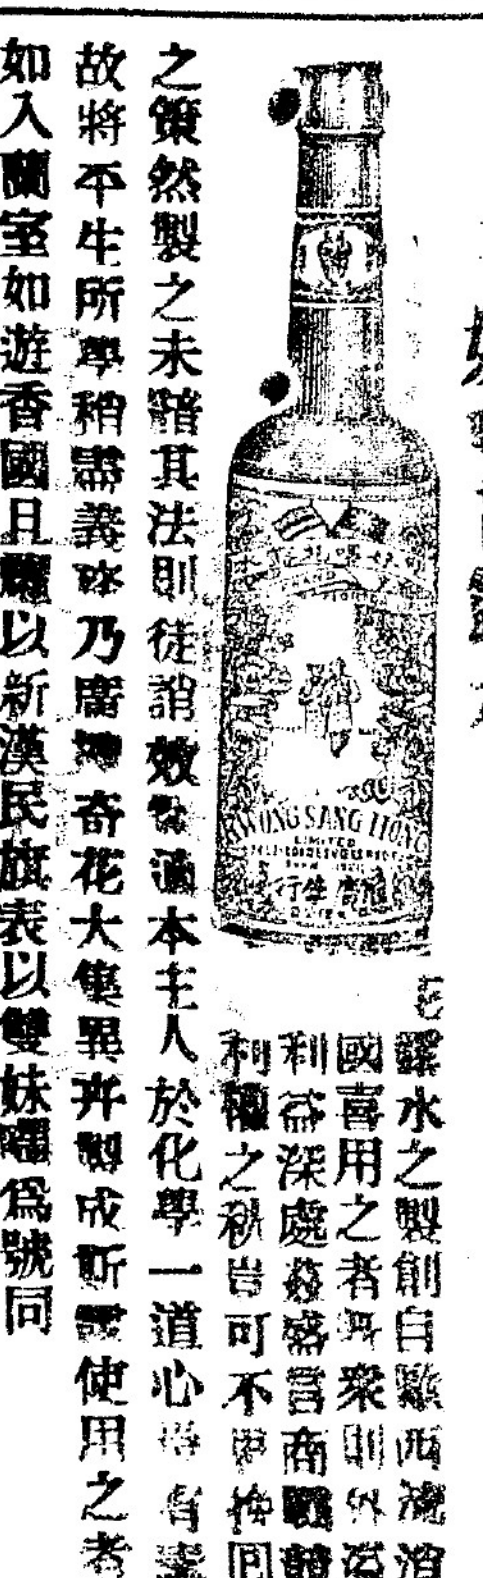 KWONG SANG HONG
LIMITED
行生廣
露水之製創自歐西流消
國喜用之者既衆則外溢
利益深處茲盛言商戰競
利權之秋豈可不思挽回
之策然製之未諳其法則徒誚效顰適本主人於化學一道心得有素
故將平生所學稍盡義務乃廣搜奇花大集異卉製成斯露使用之者
如入蘭室如遊香國且以新漢民旗表以雙妹嚜爲號同